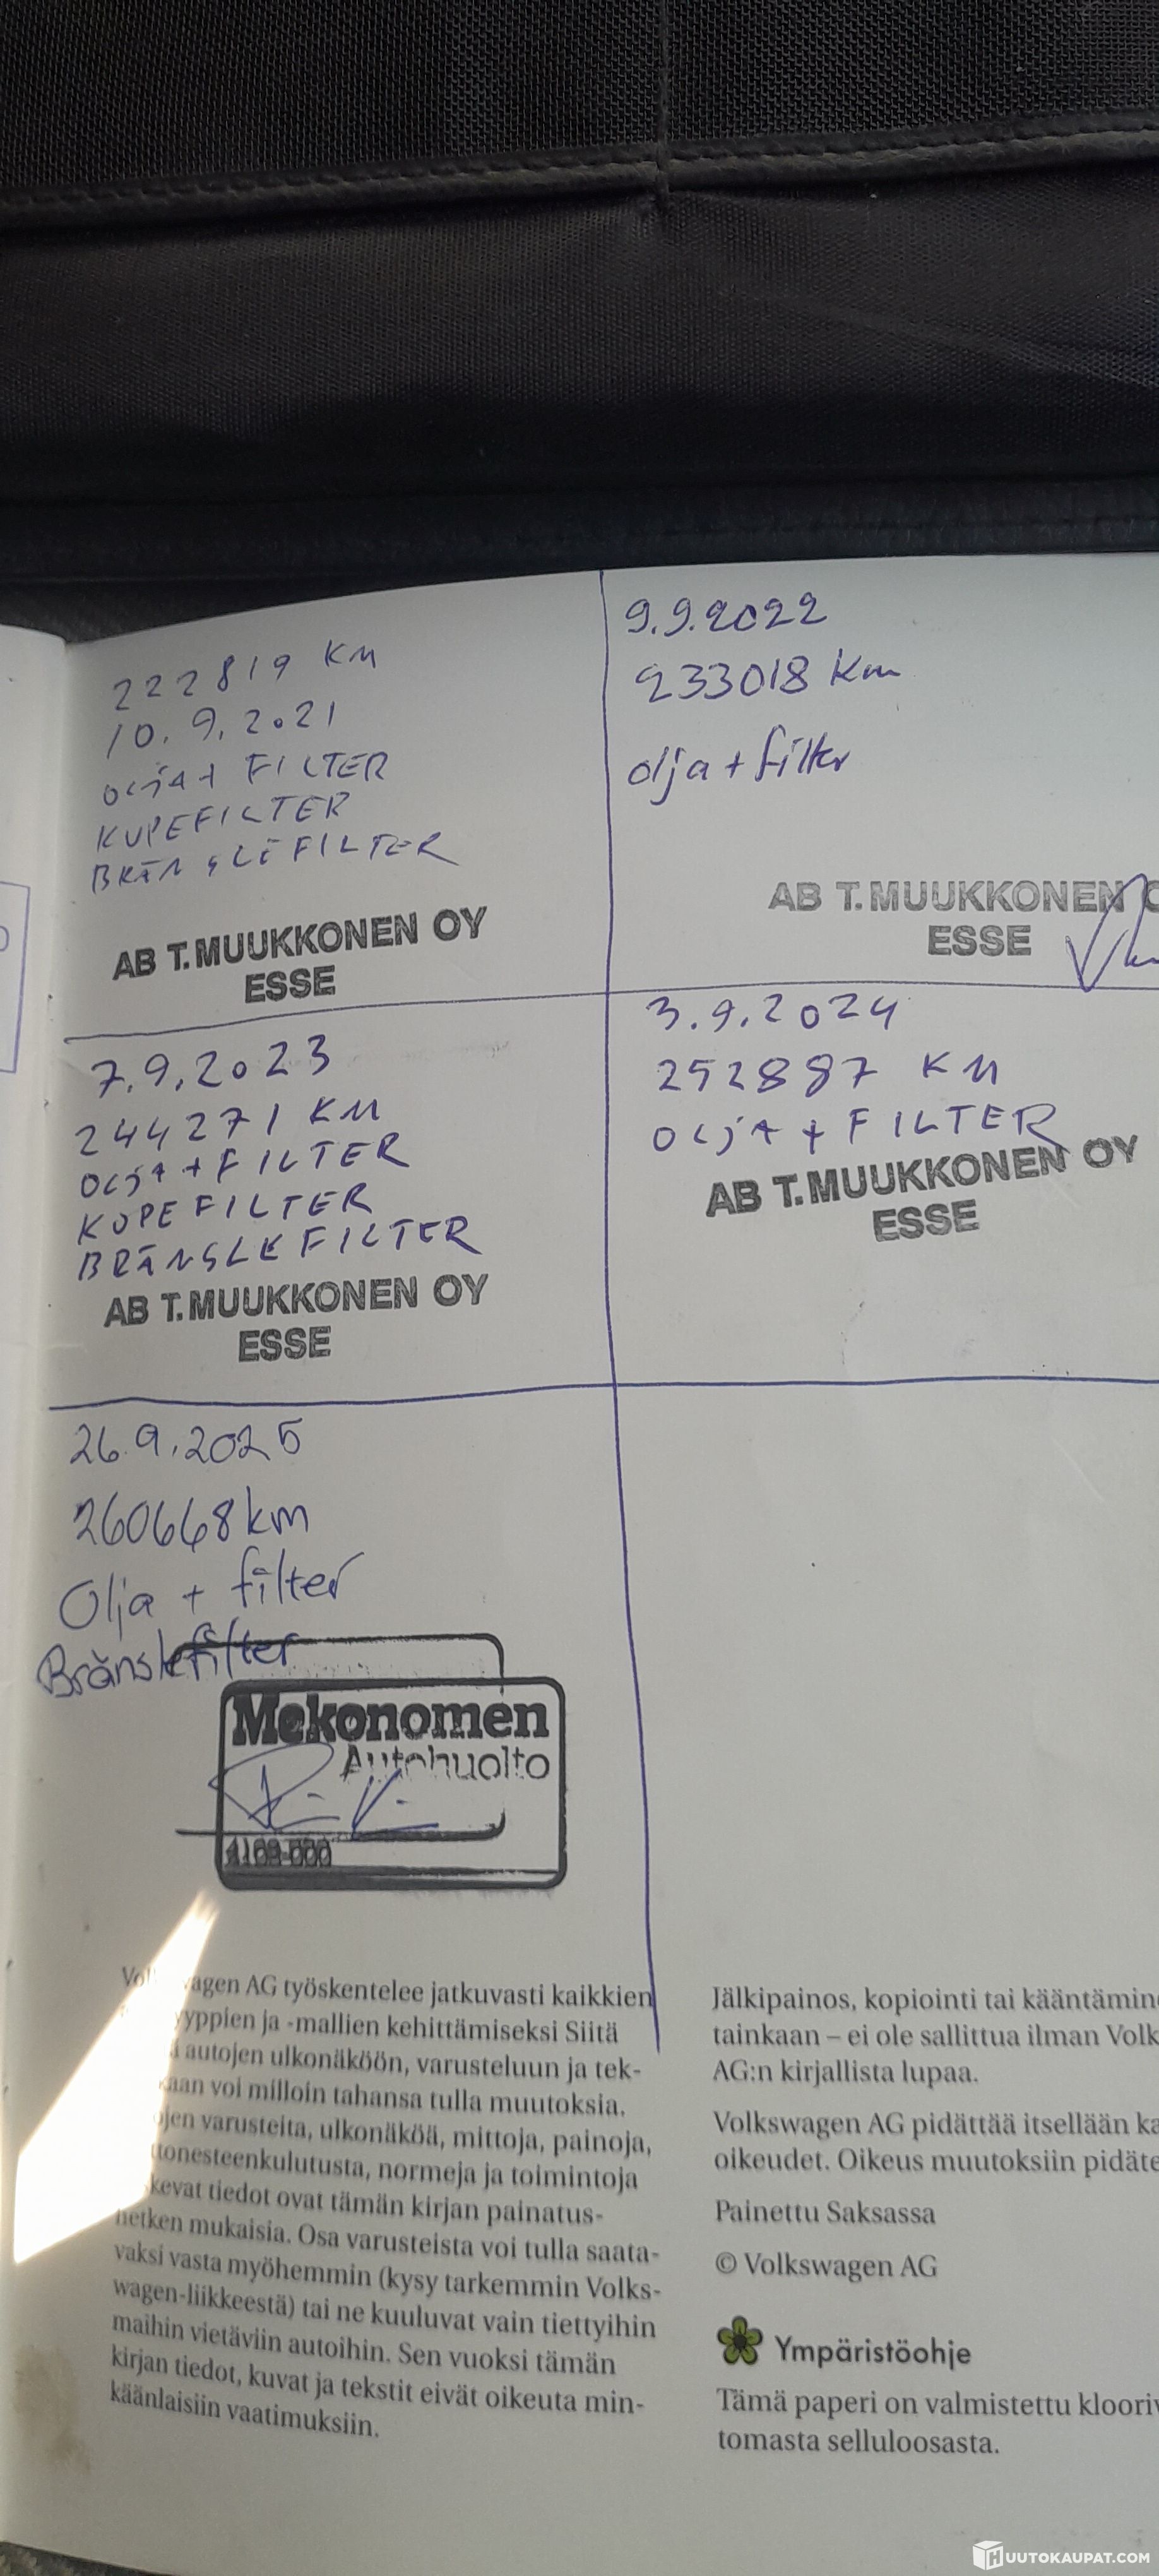 222819 KM
10.9.2021
OLJA + FILTER
KUPEFILTER
BRÄNSLEFILTER
AB T.MUUKKONEN OY
ESSE
9.9.2022
233018 Km
olja + filter
AB T.MUUKKONEN
ESSE
7.9.2023
244271 KM
OLJA + FILTER
KUPEFILTER
BRÄNSLEFILTER
AB T.MUUKKONEN OY
ESSE
3.9.2024
252887 KM
OLJA + FILTER
AB T.MUUKKONEN OY
ESSE
26.9.2025
260668 km
Olja + filter
Bränslefilter
Mekonomen
Autohuolto
AG työskentelee jatkuvasti kaikkien
ja -mallien kehittämiseksi Siitä
autojen ulkonäköön, varusteluun ja tek-
voi milloin tahansa tulla muutoksia.
varusteita, ulkonäköä, mittoja, painoja,
normeja ja toimintoja
tiedot ovat tämän kirjan painatus-
hetken mukaisia. Osa varusteista voi tulla saata-
vaksi vasta myöhemmin (kysy tarkemmin Volks-
wagen-liikkeestä) tai ne kuuluvat vain tiettyihin
maihin vietäviin autoihin. Sen vuoksi tämän
kirjan tiedot, kuvat ja tekstit eivät oikeuta min-
käänlaisiin vaatimuksiin.
Jälkipainos, kopiointi tai
tainkaan – ei ole sallittua ilman Volk
AG:n kirjallista lupaa.
Volkswagen AG pidättää itsellään
oikeudet. Oikeus muutoksiin
Painettu Saksassa
© Volkswagen AG
Ympäristöohje
Tämä paperi on valmistettu
tomasta selluloosasta.
HUUTOKAUPAT.COM